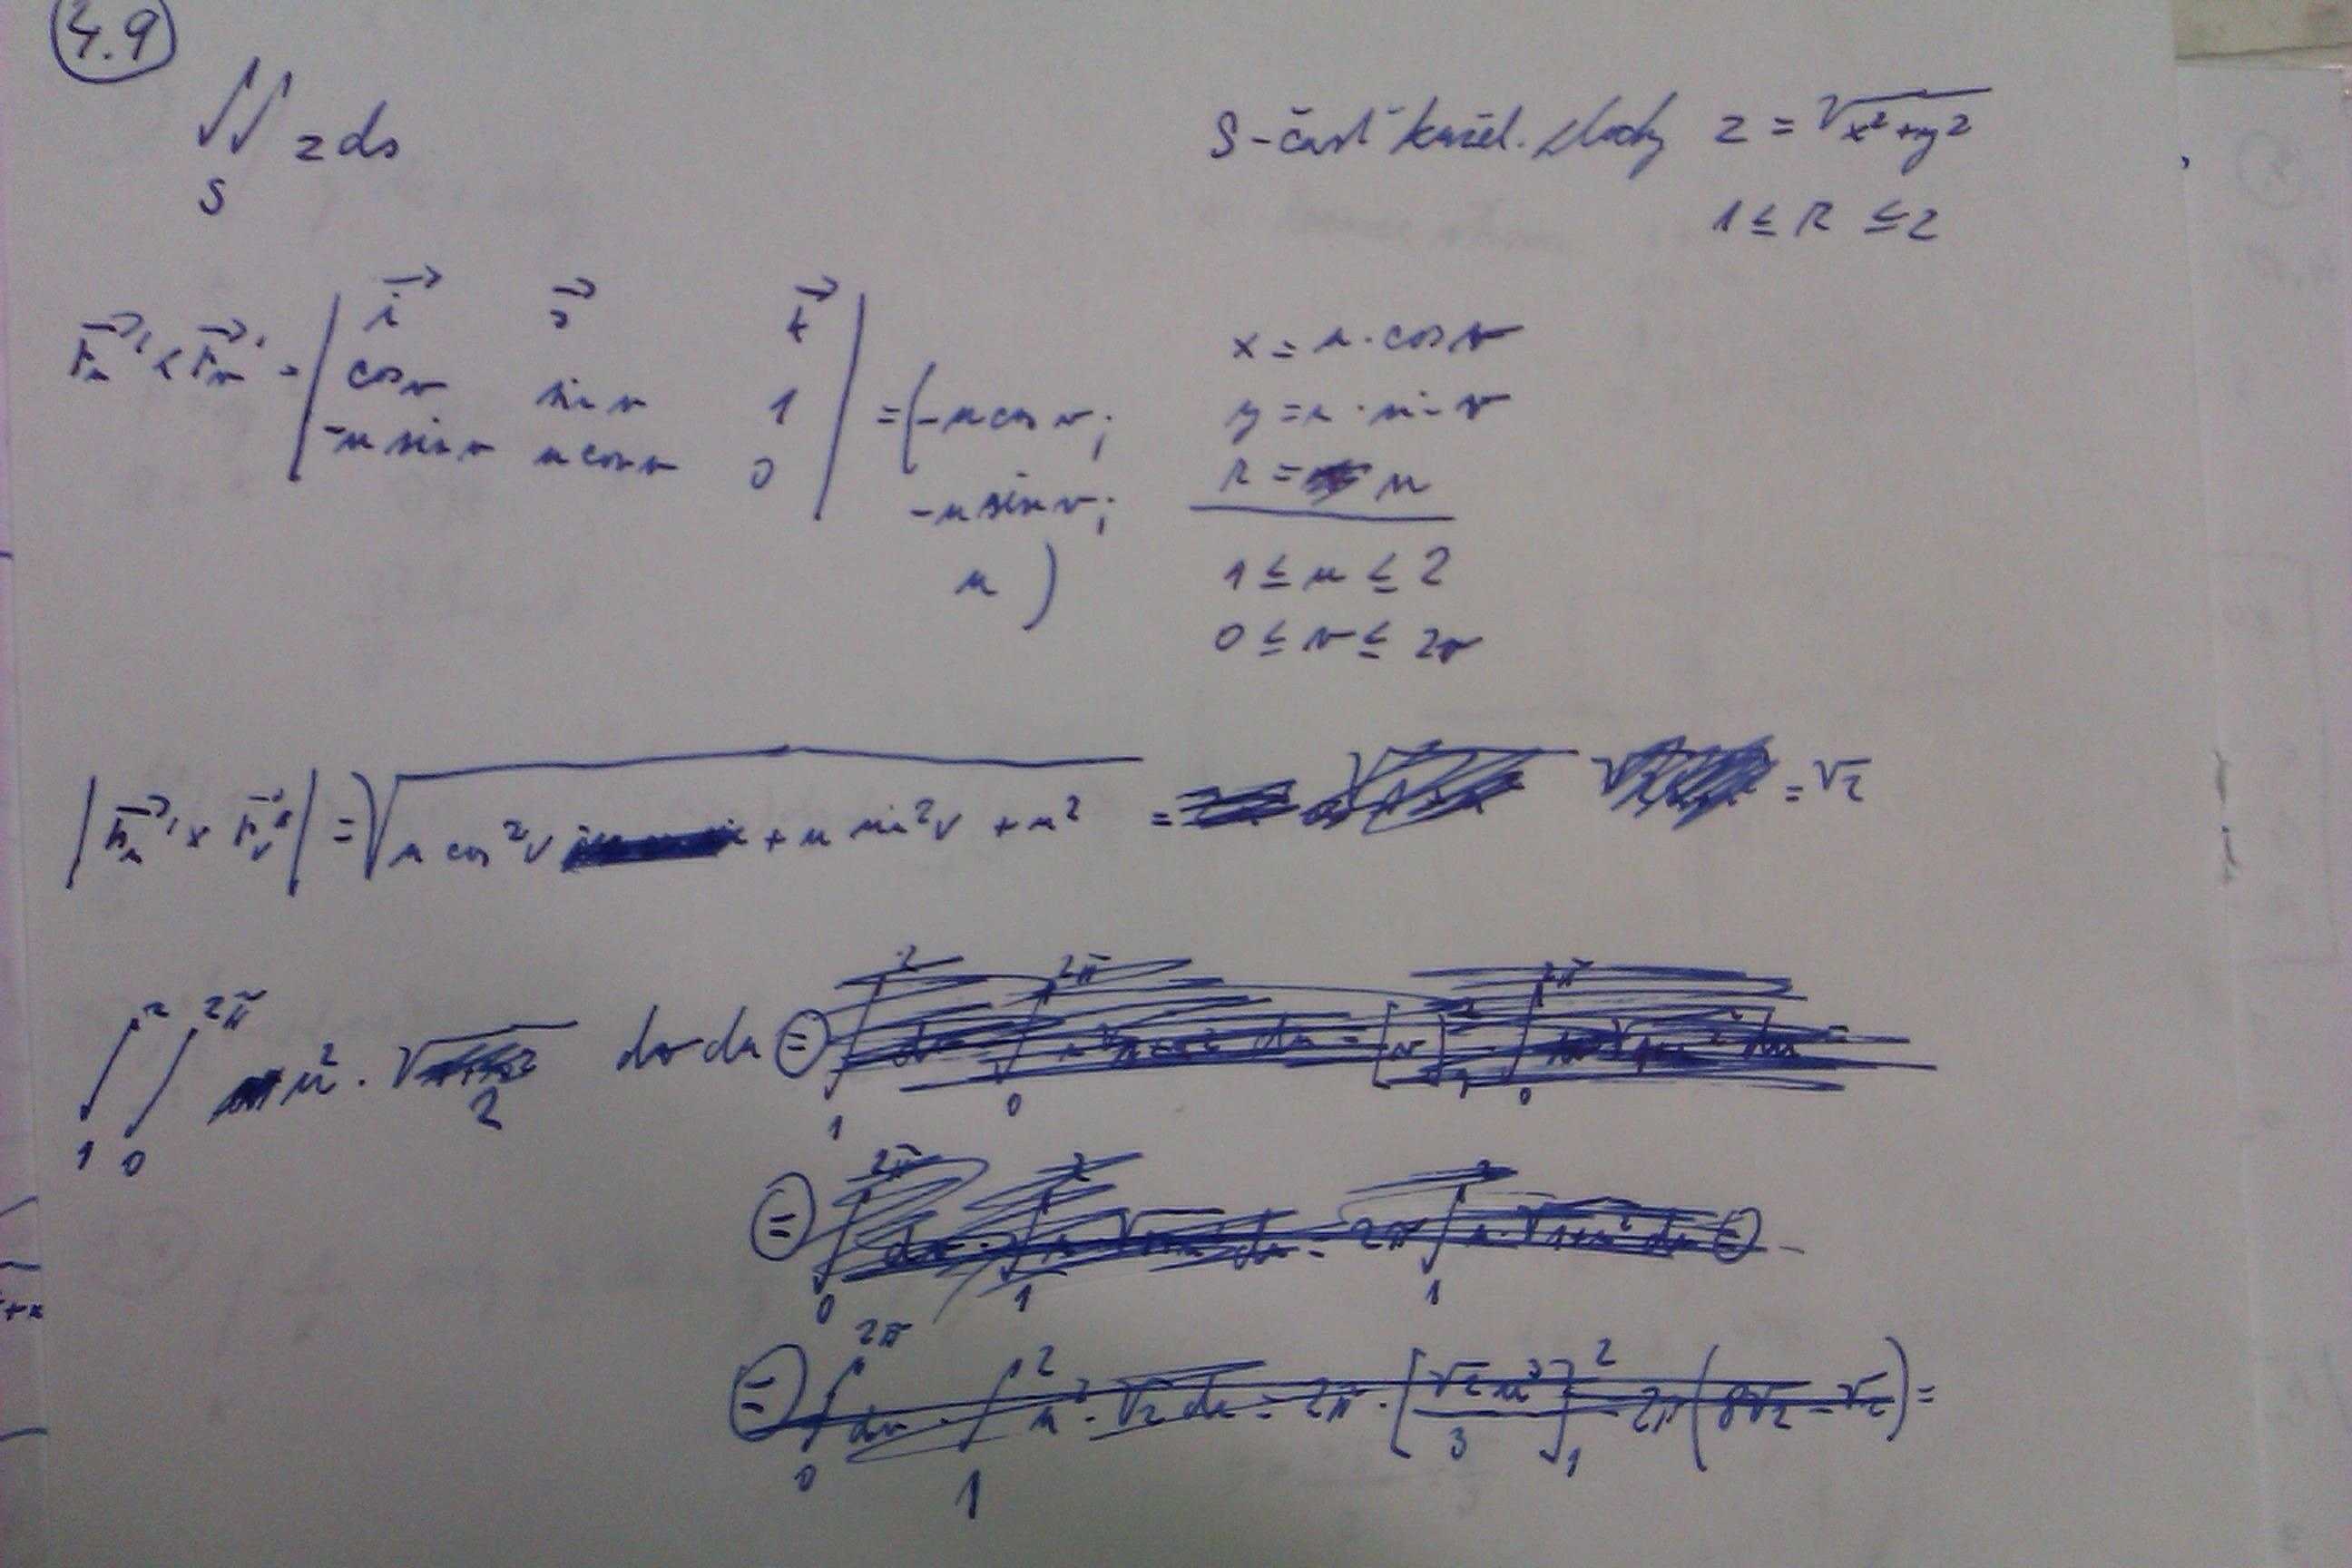 4.9
∬ z ds
S
S - časť kužel. plochy z = √(x² + y²)
1 ≤ z ≤ 2
r⃗u' × r⃗v' = | i⃗ j⃗ k⃗ | = (-u cos v;
cos v sin v 1
-u sin v u cos v 0
-u sin v;
u )
x = u · cos v
y = u · sin v
z = u
1 ≤ u ≤ 2
0 ≤ v ≤ 2π
| r⃗u' × r⃗v' | = √(u cos² v + u sin² v + u²) = = √2
∫₁² ∫₀^2π u² · √2 dv du =
= ∫₀^2π dv · ∫₁² u² · √2 du = 2π · [√2 u³ / 3]₁² = 2π (8√2 - √2) =